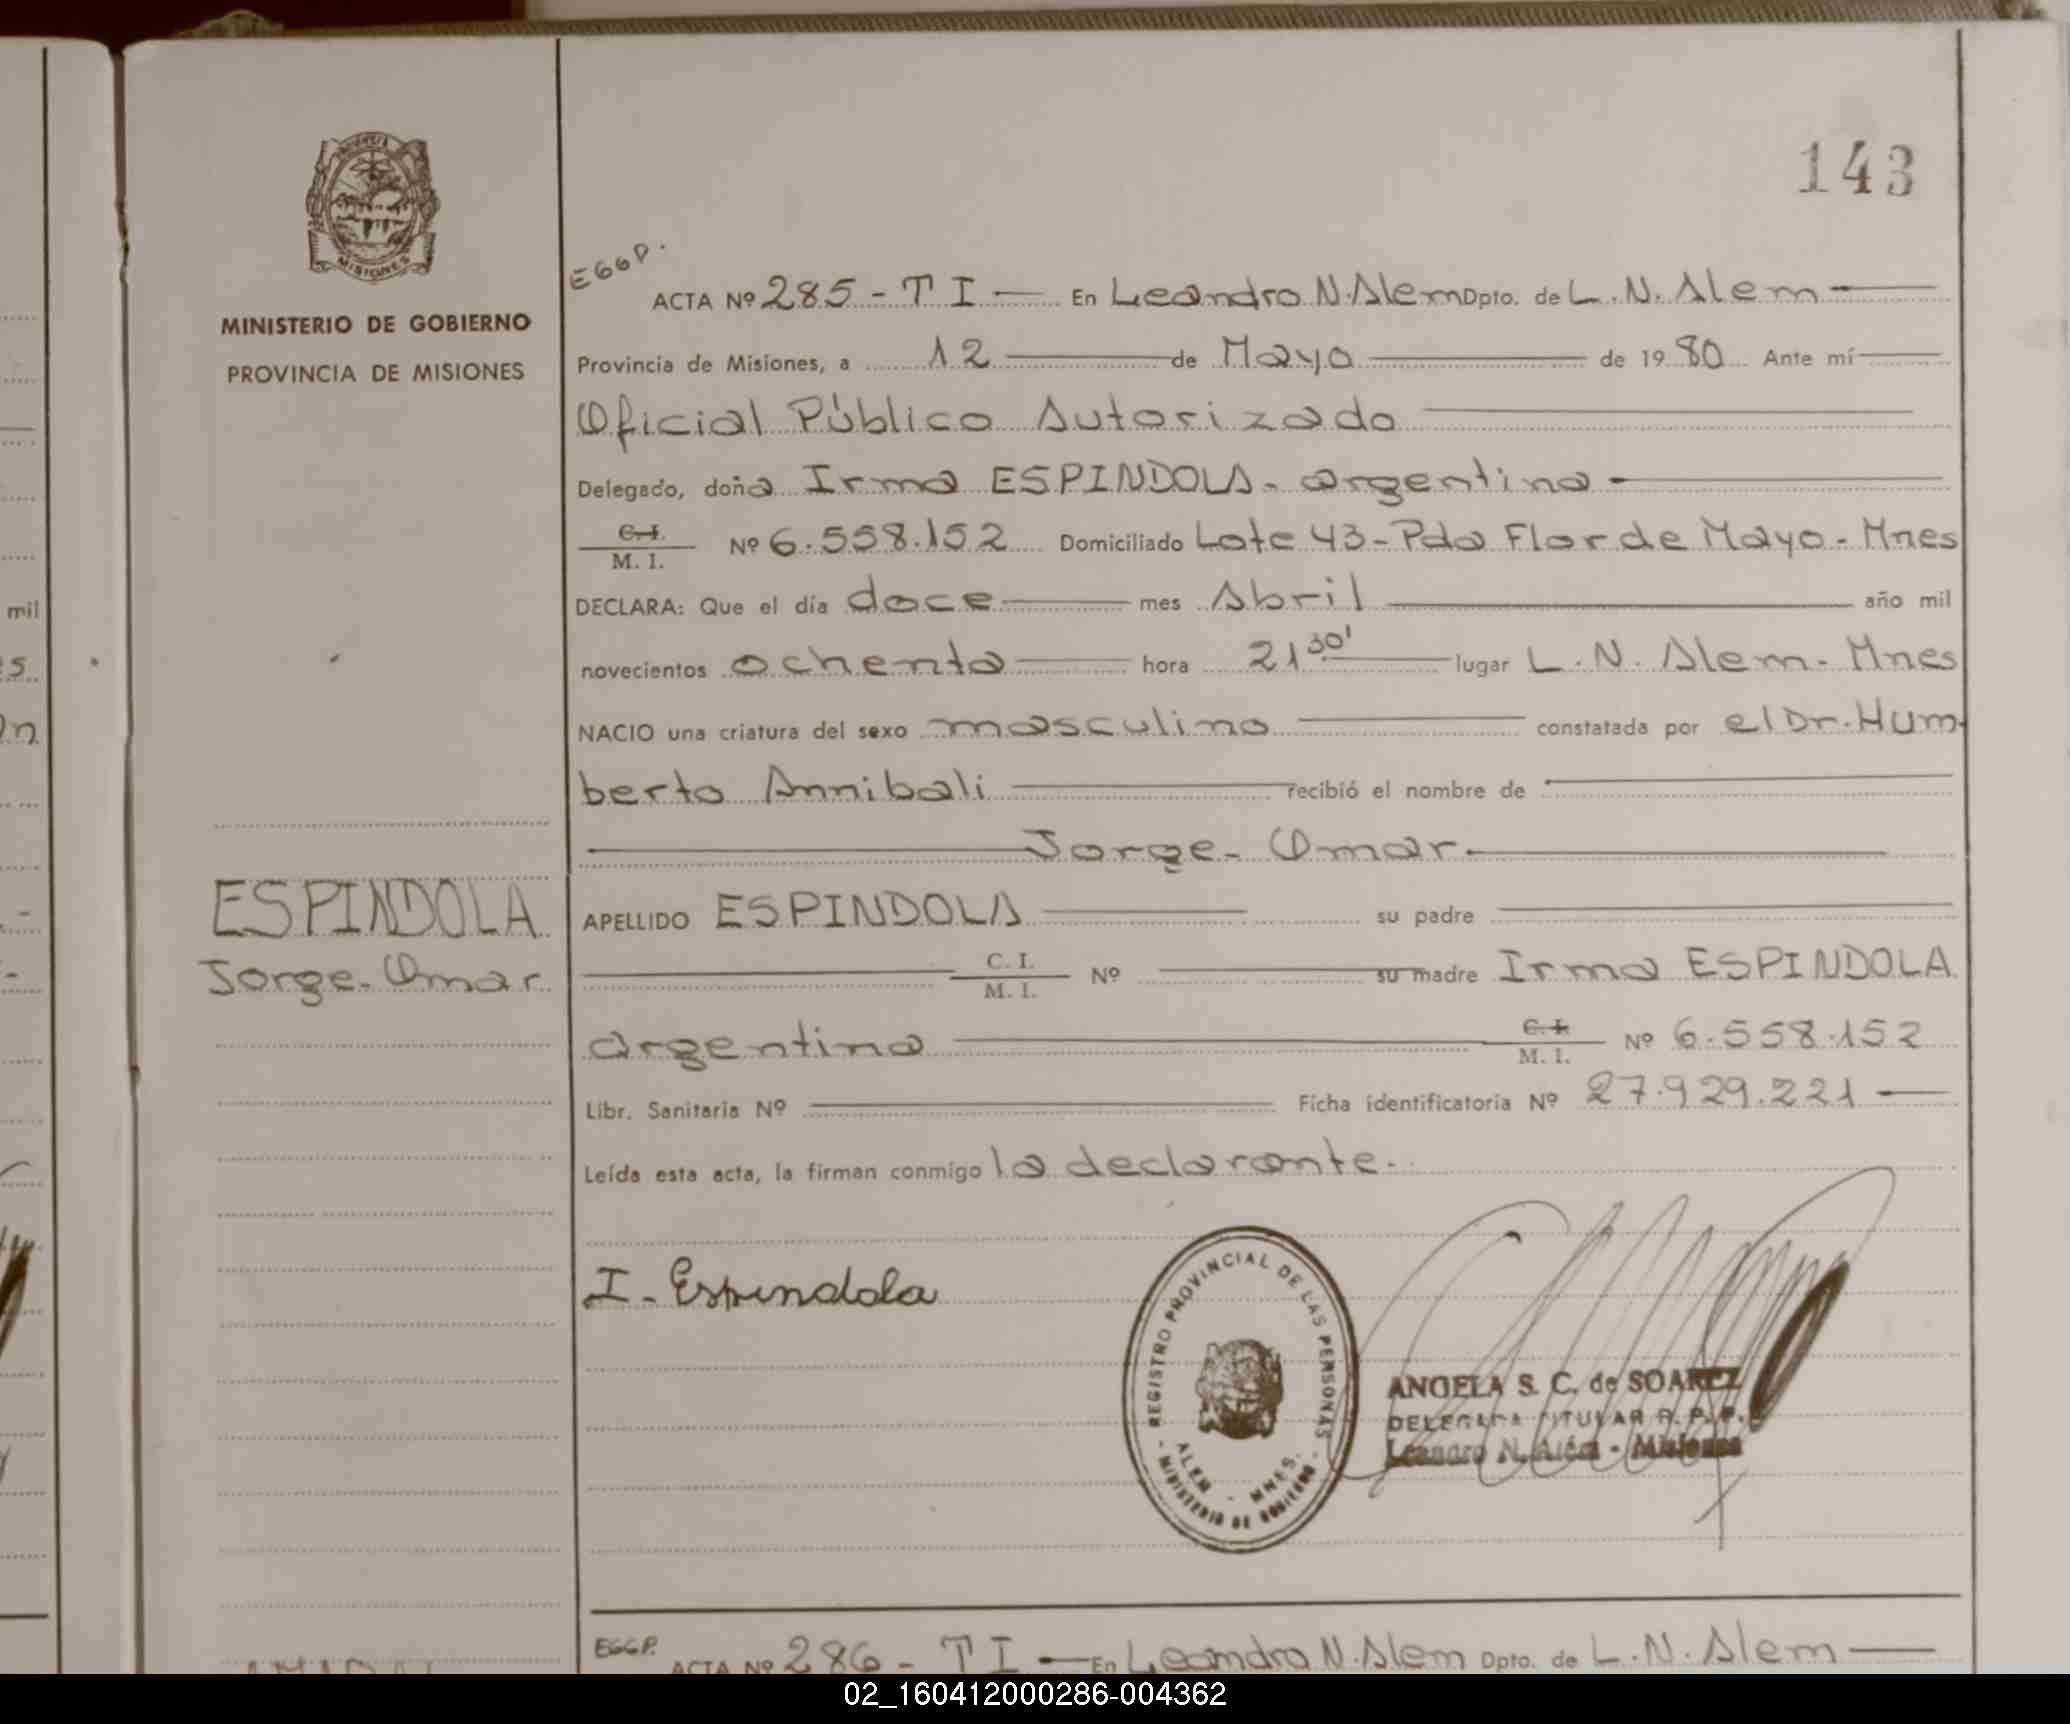 143
MISIONES
MINISTERIO DE GOBIERNO
PROVINCIA DE MISIONES
EGGP.
ACTA Nº 285 - T I — En Leandro N. Alem Dpto. de L. N. Alem —
Provincia de Misiones, a 12 — de Mayo — de 1980 Ante mí —
Oficial Público Autorizado —
Delegado, doña Irma ESPINDOLA - argentina —
C. I. / M. I. Nº 6.558.152 Domiciliado Lote 43 - Pda Flor de Mayo - Mnes
DECLARA: Que el día doce — mes Abril — año mil
novecientos ochenta — hora 21 30' — lugar L. N. Alem - Mnes
NACIO una criatura del sexo masculino — constatada por el Dr. Hum-
berto Annibali — recibió el nombre de —
— Jorge - Omar. —
ESPINDOLA
Jorge - Omar.
APELLIDO ESPINDOLA — su padre —
— C. I. / M. I. Nº — su madre Irma ESPINDOLA
argentina — C. I. / M. I. Nº 6.558.152
Libr. Sanitaria Nº — Ficha identificatoria Nº 27.929.221 —
Leída esta acta, la firman conmigo la declarante.
I - Espindola
REGISTRO PROVINCIAL DE LAS PERSONAS
ALEM - MNES.
- MINISTERIO DE GOBIERNO -
ANGELA S. C. de SOAREZ
DELEGADA TITULAR R. P. P.
Leandro N. Alem - Misiones
EGGP.
ACTA Nº 286 - T I — En Leandro N. Alem Dpto. de L. N. Alem —
mil
02_160412000286-004362